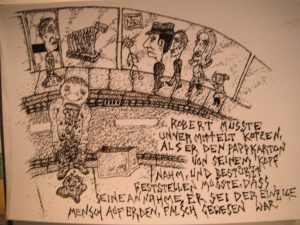 ROBERT MUSSTE
UNVERMITTELT KOTZEN,
ALS ER DEN PAPPKARTON
VON SEINEM KOPF
NAHM, UND BESTÜRZT
FESTSTELLEN MUSSTE, DASS
SEINE ANNAHME, ER SEI DER EINZIGE
MENSCH AUF ERDEN, FALSCH GEWESEN WAR.